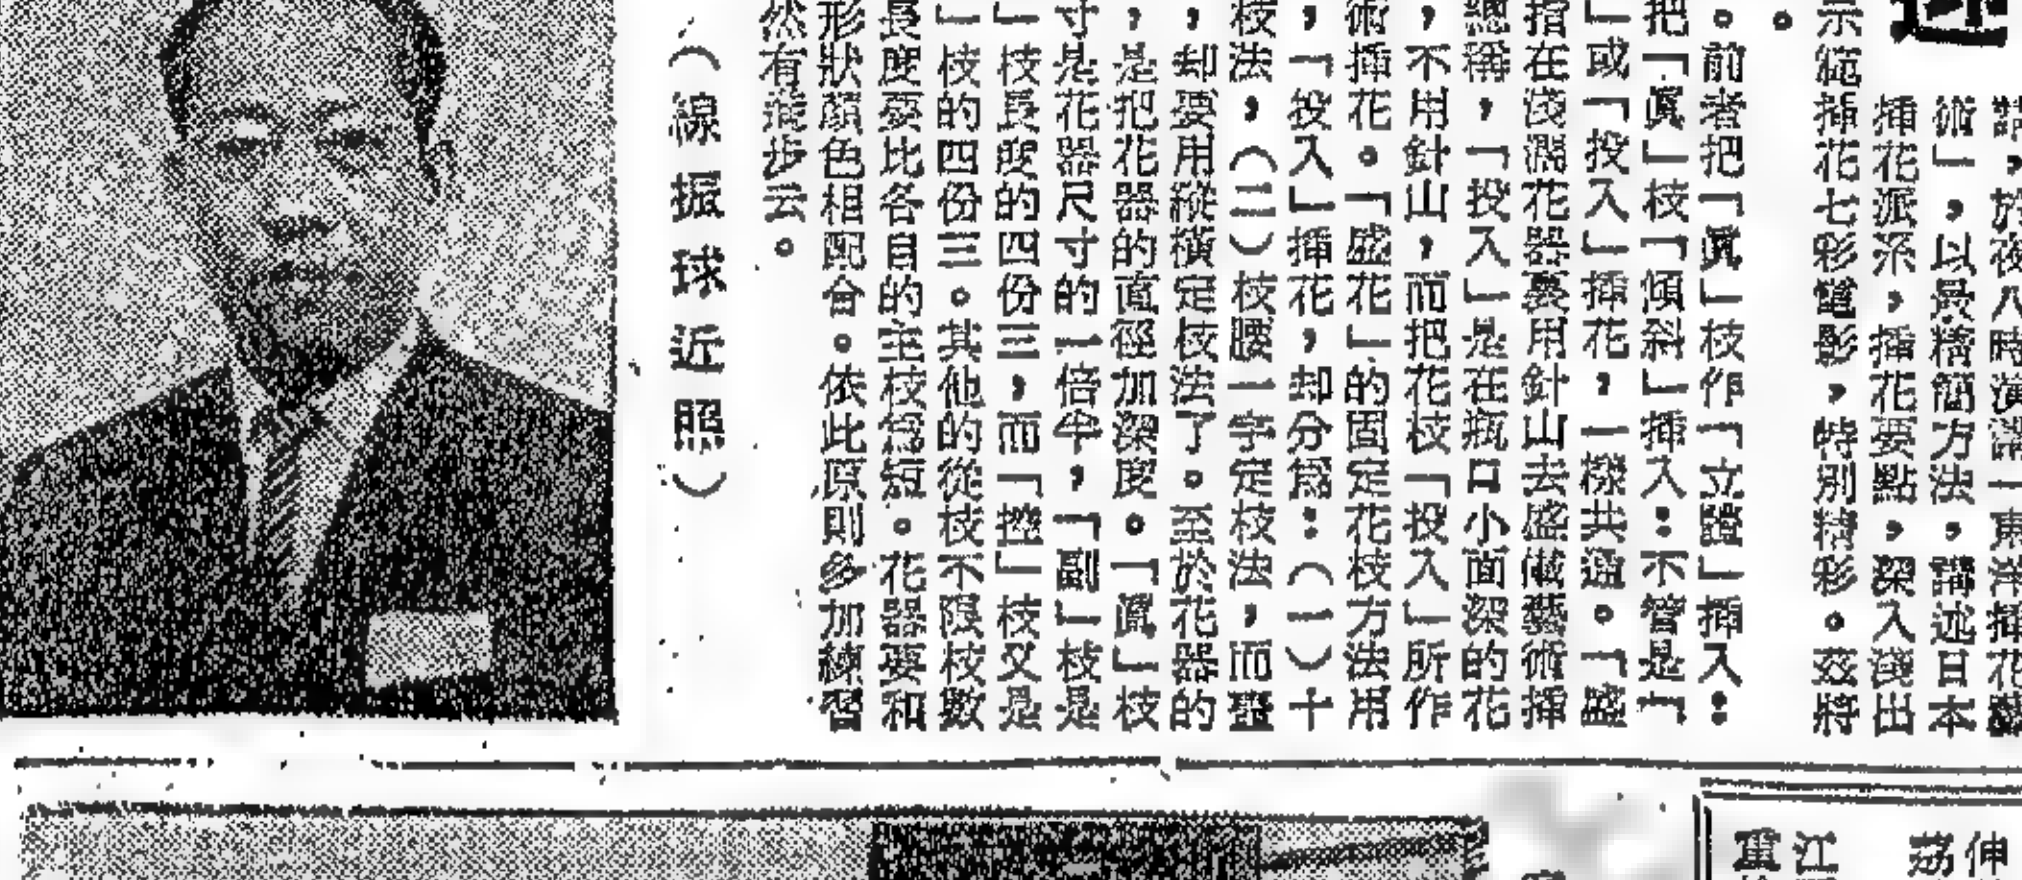 述
於夜八時演講一東洋揷花藝
術」，以最精簡方法，講述日本
揷花派系，揷花要點，深入淺出
示範揷花七彩電影，特別精彩。茲將
。
。前者把「眞」枝作「立體」揷入：
把「眞」枝「傾斜」揷入：不管是「
」或「投入」揷花，一樣共通。「盛
指在淺濶花器裏用針山去盛做藝術揷
總稱，「投入」是在瓶口小面深的花
，不用針山，而把花枝「投入」所作
術揷花。「盛花」的固定花枝方法用
，「投入」揷花，却分爲：（一）十
枝法，（二）枝腰一字定枝法，而
，却要用縱橫定枝法了。至於花器的
，是把花器的直徑加深度。「眞」枝
寸是花器尺寸的一倍半，「副」枝是
」枝長度的四份三，而「控」枝又是
」枝的四份三。其他的從枝不限枝數
長度要比各自的主枝爲短。花器要和
形狀顏色相配合。依此原則多加練習
然有進步云。
（線振球近照）
伸
荔
江
重